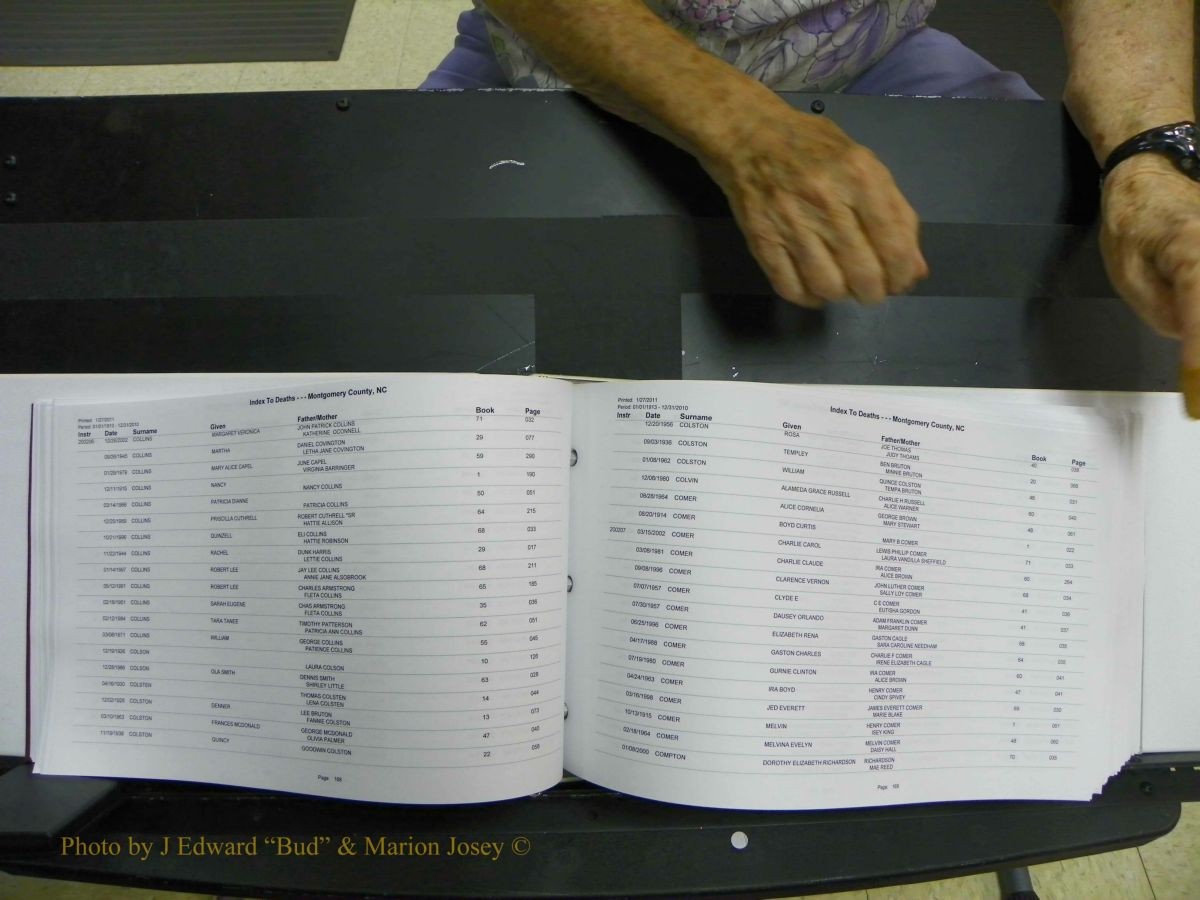 Index To Deaths - - - Montgomery County, NC
Printed: 1/27/2011
Period: 01/01/1913 - 12/31/2010
Instr Date Surname Given Father/Mother Book Page
COLLINS MARGARET VERONICA JOHN PATRICK COLLINS 71 032
KATHERINE OCONNELL
COLLINS MARTHA DANIEL COVINGTON 29 077
LETHA JANE COVINGTON
COLLINS MARY ALICE CAPEL JUNE CAPEL 59 290
VIRGINIA BARRINGER
COLLINS NANCY 1 190
NANCY COLLINS
COLLINS PATRICIA DIANNE 50 051
PATRICIA COLLINS
COLLINS PRISCILLA CUTHRELL ROBERT CUTHRELL *SR 64 215
HATTIE ALLISON
COLLINS QUINZELL ELI COLLINS 68 033
HATTIE ROBINSON
COLLINS RACHEL DUNK HARRIS 29 017
LETTIE COLLINS
COLLINS ROBERT LEE JAY LEE COLLINS 68 211
ANNIE JANE ALSOBROOK
COLLINS ROBERT LEE CHARLES ARMSTRONG 65 185
FLETA COLLINS
COLLINS SARAH EUGENE CHAS ARMSTRONG 35 036
FLETA COLLINS
COLLINS TARA TANEE TIMOTHY PATTERSON 62 051
PATRICIA ANN COLLINS
COLLINS WILLIAM GEORGE COLLINS 55 045
PATIENCE COLLINS
COLSON 10 126
LAURA COLSON
COLSON OLA SMITH DENNIS SMITH 63 028
SHIRLEY LITTLE
COLSTEN THOMAS COLSTEN 14 044
LENA COLSTEN
COLSTON DENNER LEE BRUTON 13 073
FANNIE COLSTON
COLSTON FRANCES MCDONALD GEORGE MCDONALD 47 040
OLIVIA PALMER
COLSTON QUINCY 22 058
GOODWIN COLSTON
Page: 168
Index To Deaths - - - Montgomery County, NC
Printed: 1/27/2011
Period: 01/01/1913 - 12/31/2010
Instr Date Surname Given Father/Mother Book Page
12/20/1956 COLSTON ROSA JOE THOMAS 42 038
JUDY THOAMS
09/03/1936 COLSTON TEMPLEY BEN BRUTON 20
MINNIE BRUTON
01/08/1962 COLSTON WILLIAM QUINCE COLSTON 46 031
TEMPA BRUTON
12/06/1980 COLVIN ALAMEDA GRACE RUSSELL CHARLIE H RUSSELL 60 040
ALICE WARNER
08/28/1964 COMER ALICE CORNELIA GEORGE BROWN 48 061
MARY STEWART
08/20/1914 COMER BOYD CURTIS 1 022
MARY B COMER
200207 03/15/2002 COMER CHARLIE CAROL LEWIS PHILLIP COMER 71 033
LAURA VANDILLA SHEFFIELD
03/08/1981 COMER CHARLIE CLAUDE IRA COMER 60 264
ALICE BROWN
09/08/1996 COMER CLARENCE VERNON JOHN LUTHER COMER 68 034
SALLY LOY COMER
07/07/1957 COMER CLYDE E C E COMER 41 036
EUTISHA GORDON
07/30/1957 COMER DAUSEY ORLANDO ADAM FRANKLIN COMER 41 037
MARGARET DUNN
06/25/1996 COMER ELIZABETH RENA GASTON CAGLE 68 035
SARA CAROLINE NEEDHAM
04/17/1988 COMER GASTON CHARLES CHARLIE F COMER 64 035
IRENE ELIZABETH CAGLE
07/19/1980 COMER GURNIE CLINTON IRA COMER 60 041
ALICE BROWN
04/24/1963 COMER IRA BOYD HENRY COMER 47 041
CINDY SPIVEY
03/16/1998 COMER JED EVERETT JAMES EVERETT COMER 69 030
MARIE BLAKE
10/13/1915 COMER MELVIN HENRY COMER 1 051
ISEY KING
02/18/1964 COMER MELVINA EVELYN MELVIN COMER 48 060
DAISY HALL
01/08/2000 COMPTON DOROTHY ELIZABETH RICHARDSON RICHARDSON 70 035
MAE REED
Page: 169
Photo by J Edward “Bud” & Marion Josey ©